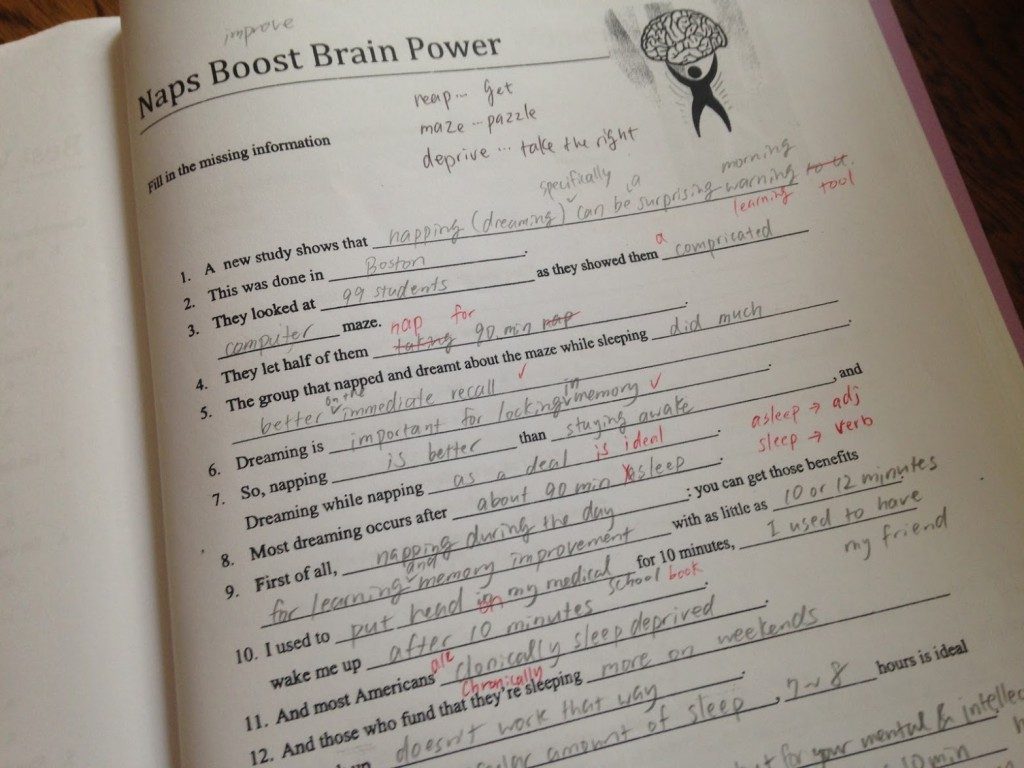 improve
Naps Boost Brain Power
reap... get
maze... pazzle
deprive... take the right
Fill in the missing information
specifically a morning
1. A new study shows that napping (dreaming) can be surprising warning
learning tool
2. This was done in Boston.
3. They looked at 99 students as they showed them a compricated
computer maze.
nap for
4. They let half of them taking 90 min nap.
5. The group that napped and dreamt about the maze while sleeping did much
better on the immediate recall ✓.
6. Dreaming is important for locking in memory ✓.
7. So, napping is better than staying awake, and
Dreaming while napping as a deal is ideal.
asleep → adj
sleep → verb
8. Most dreaming occurs after about 90 min asleep.
9. First of all, napping during the day; you can get those benefits
for learning and memory improvement with as little as 10 or 12 minutes
10. I used to put head on my medical school book for 10 minutes, I used to have
my friend
wake me up after 10 minutes.
11. And most Americans are clonically sleep deprived.
chronically
12. And those who fund that they're sleeping more on weekends
doesn't work that way.
amount of sleep, 7~8 hours is ideal
for your mental &
10 min